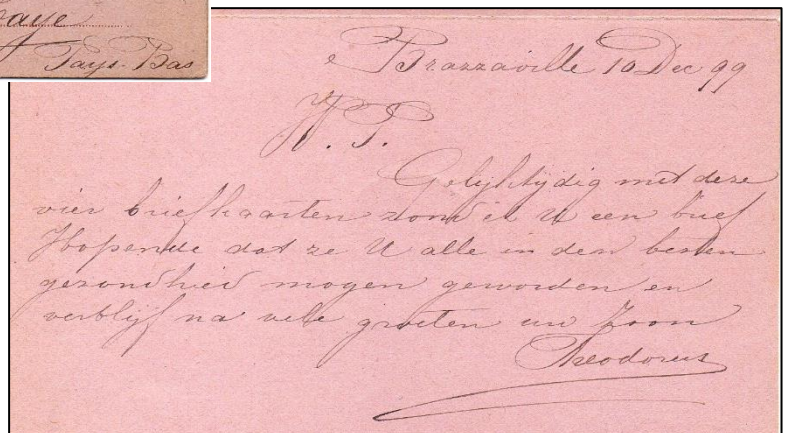 Haye
Pays-Bas
Brazzaville 10 Dec 99
W. P.
Gelijktijdig met deze
vier briefkaarten zond ik U een brief
Hopende dat ze U alle in den besten
gezondheid mogen geworden en
verblijf na vele groeten uw Zoon
Theodorus